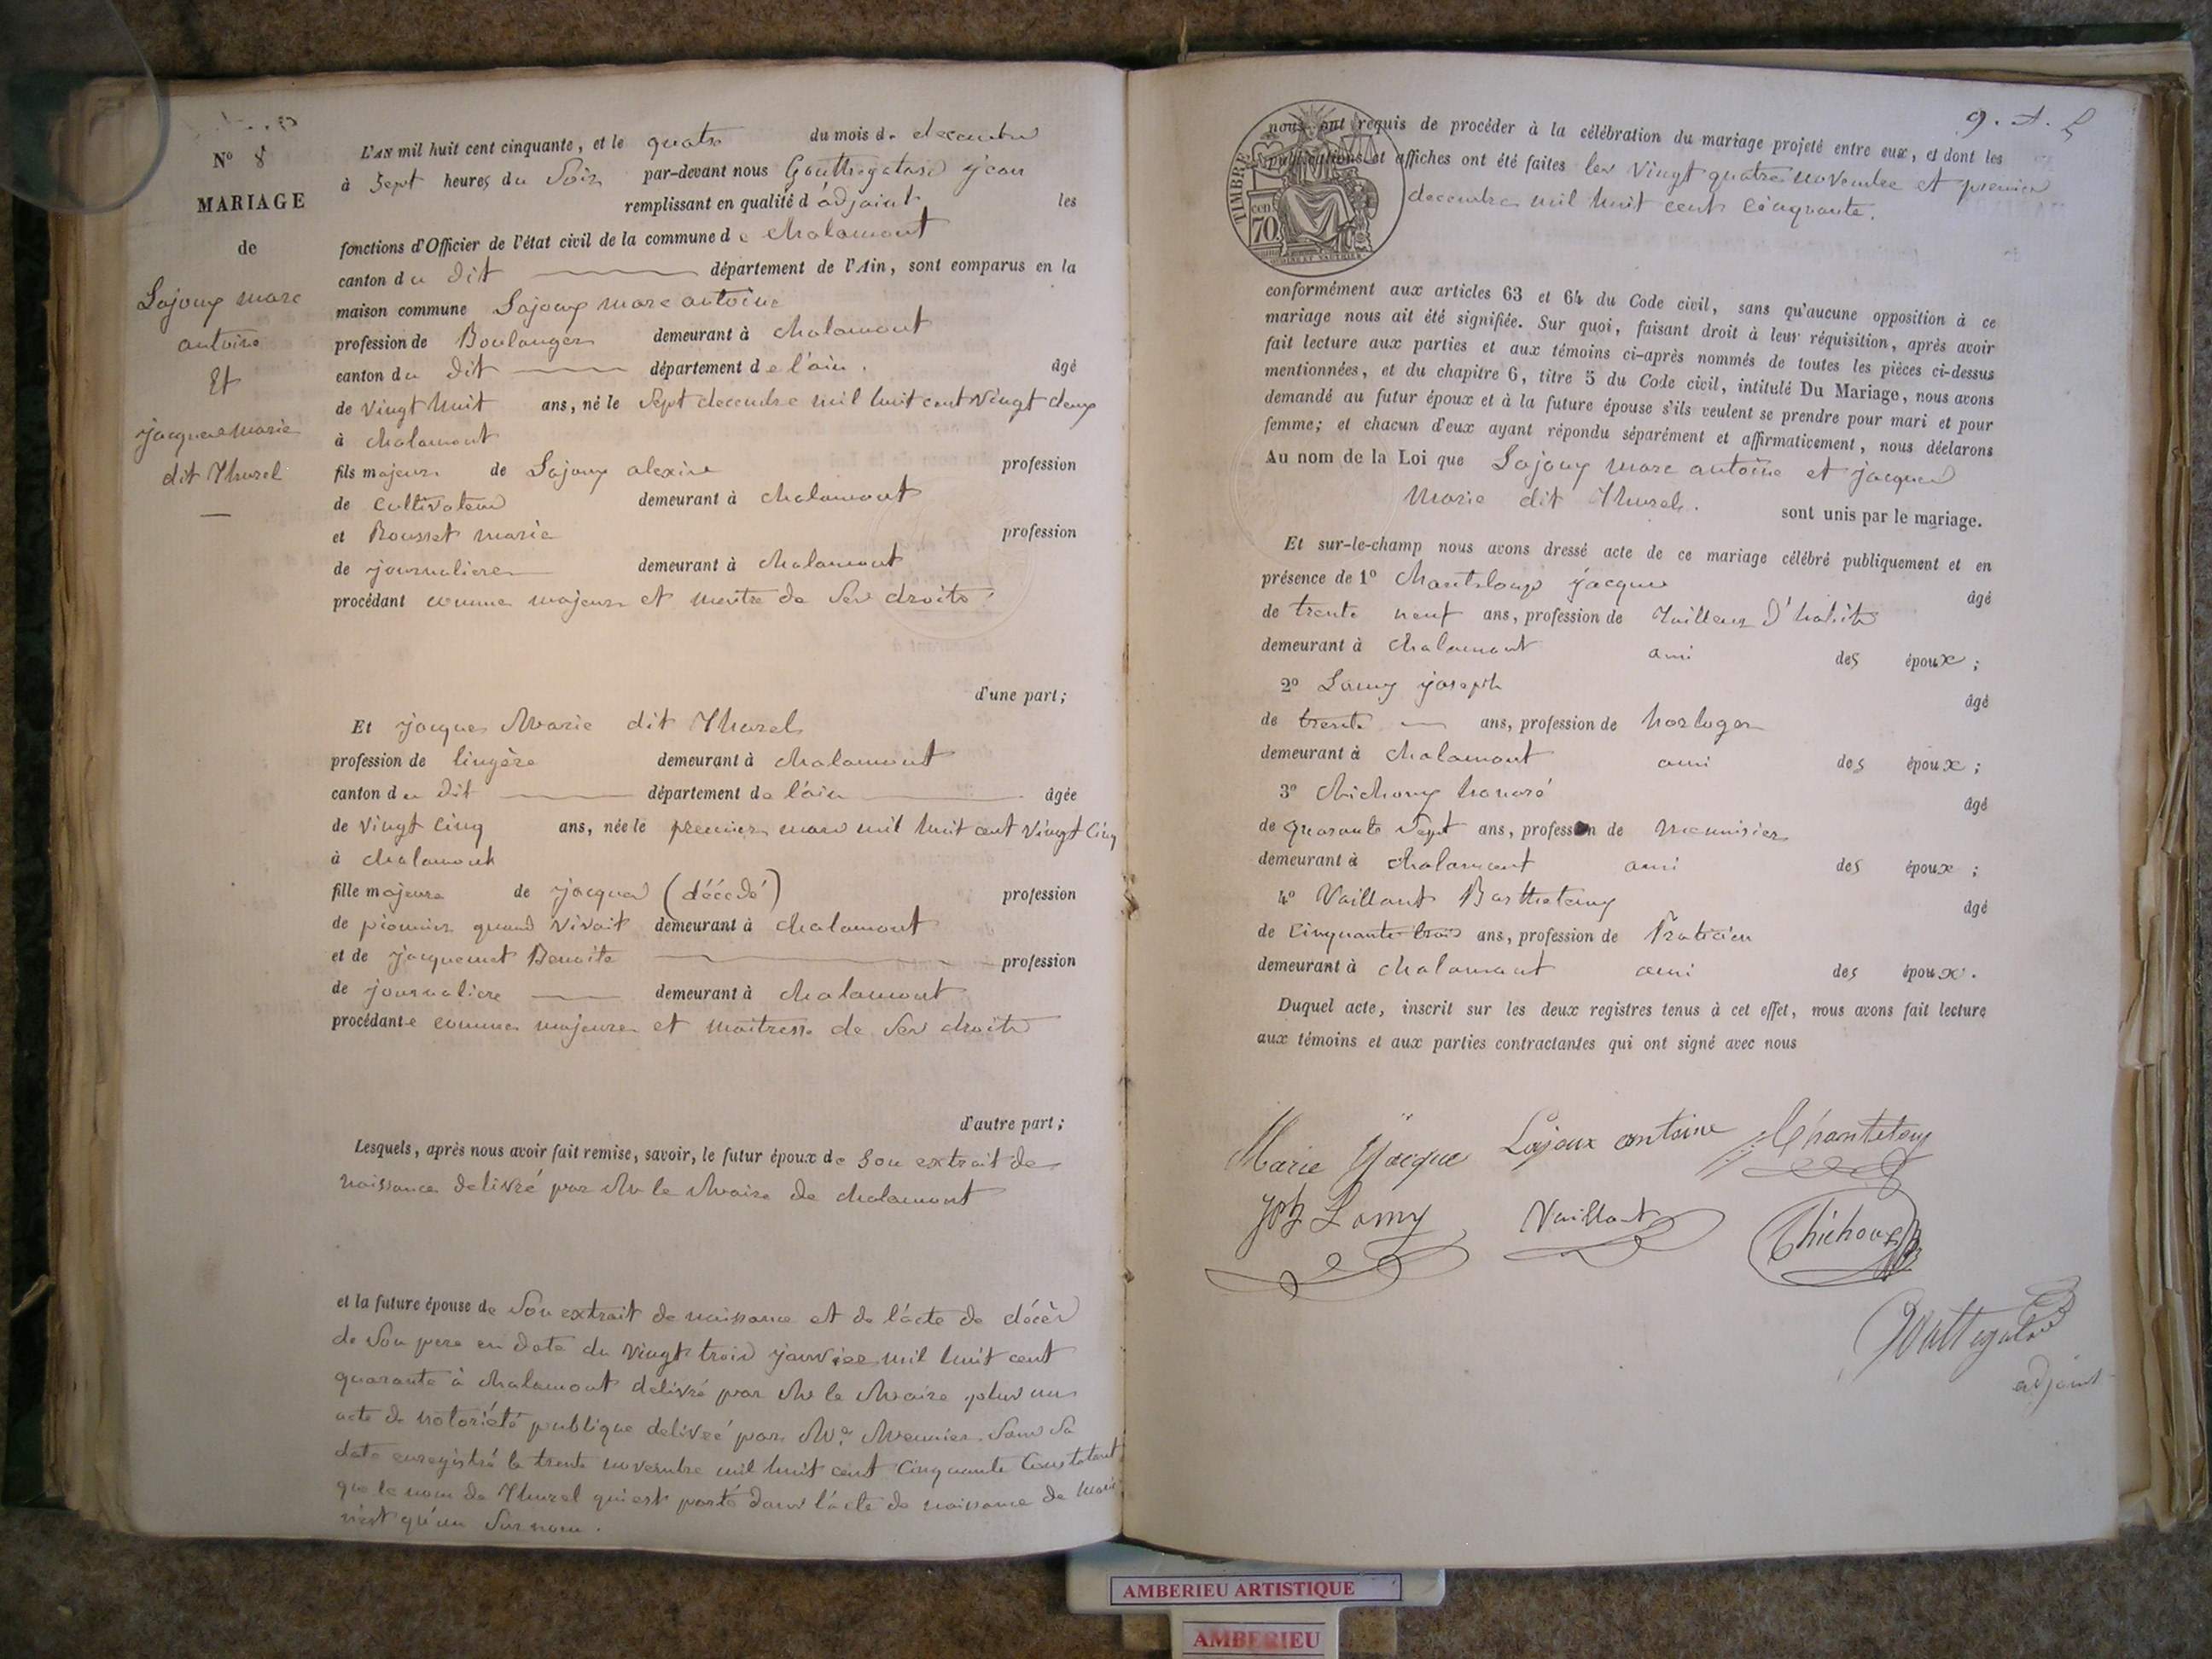 N° 8
MARIAGE
de
Lajoux marc
antoine
Et
jacques Marie
dit Thurel
L'AN mil huit cent cinquante, et le quatre du mois de decembre
à Sept heures du Soir par-devant nous jean
remplissant en qualité d'adjoint les
fonctions d'Officier de l'état civil de la commune de chalamont
canton du dit département de l'Ain, sont comparus en la
maison commune Lajoux marc antoine
profession de Boulanger demeurant à chalamont
canton du dit département de l'ain. âgé
de vingt huit ans, né le Sept decembre mil huit cent vingt deux
à chalamont
fils majeur de Lajoux alexine profession
de cultivateur demeurant à chalamont
et Rousset marie profession
de journaliere demeurant à chalamont
procédant comme majeur et maitre de Ses droits
d'une part;
Et jacques Marie dit Thurel
profession de lingère demeurant à chalamont
canton du dit département de l'ain âgée
de vingt cinq ans, née le premier mars mil huit cent vingt cinq
à chalamont
fille majeure de jacques (décédé) profession
de pionnier quand vivait demeurant à chalamont
et de jacquemet Benoite profession
de journaliere demeurant à chalamont
procédante comme majeure et maitresse de Ses droits
d'autre part;
Lesquels, après nous avoir fait remise, savoir, le futur époux de Son extrait de
naissance delivré par Mr le Maire de chalamont
et la future épouse de Son extrait de naissance et de l'acte de décès
de Son pere en date du vingt trois janvier mil huit cent
quarante à chalamont delivré par Mr le Maire plus un
acte de notoriété publique delivré par Me Meunier Sans Sa
date enregistré le trente novembre mil huit cent cinquante Constatant
que le nom de Thurel qui est porté dans l'acte de naissance de Marie
n'est qu'un Surnom.
9. A. L
TIMBRE
cen 70
nous ont requis de procéder à la célébration du mariage projeté entre eux, et dont les
publications et affiches ont été faites les vingt quatre novembre et premier
decembre mil huit cent cinquante.
conformément aux articles 63 et 64 du Code civil, sans qu'aucune opposition à ce
mariage nous ait été signifiée. Sur quoi, faisant droit à leur réquisition, après avoir
fait lecture aux parties et aux témoins ci-après nommés de toutes les pièces ci-dessus
mentionnées, et du chapitre 6, titre 5 du Code civil, intitulé Du Mariage, nous avons
demandé au futur époux et à la future épouse s'ils veulent se prendre pour mari et pour
femme; et chacun d'eux ayant répondu séparément et affirmativement, nous déclarons
Au nom de la Loi que Lajoux marc antoine et jacques
Marie dit Thurel. sont unis par le mariage.
Et sur-le-champ nous avons dressé acte de ce mariage célébré publiquement et en
présence de 1° Chanteloup jacques âgé
de trente neuf ans, profession de Tailleur d'habits
demeurant à chalamont ami des époux;
2° Lamy joseph âgé
de trente ans, profession de horloger
demeurant à chalamont ami des époux;
3° Chichoux honoré âgé
de quarante Sept ans, profession de menuisier
demeurant à chalamont ami des époux;
4° Vaillant Barthelemy âgé
de cinquante trois ans, profession de Praticien
demeurant à chalamont ami des époux.
Duquel acte, inscrit sur les deux registres tenus à cet effet, nous avons fait lecture
aux témoins et aux parties contractantes qui ont signé avec nous
Marie Jacque Lajoux antoine Chanteloup
Jph Lamy Vaillant Chichoux
adjoint
AMBERIEU ARTISTIQUE
AMBERIEU